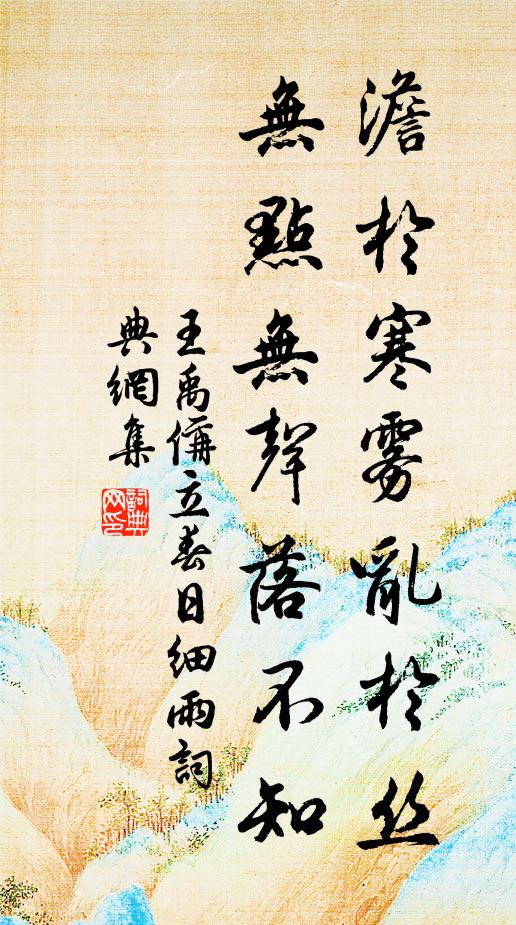 澹於寒霧亂於丝
無點無聲落不知
王禹偁立春日细雨詞
典網集
詞典
网印